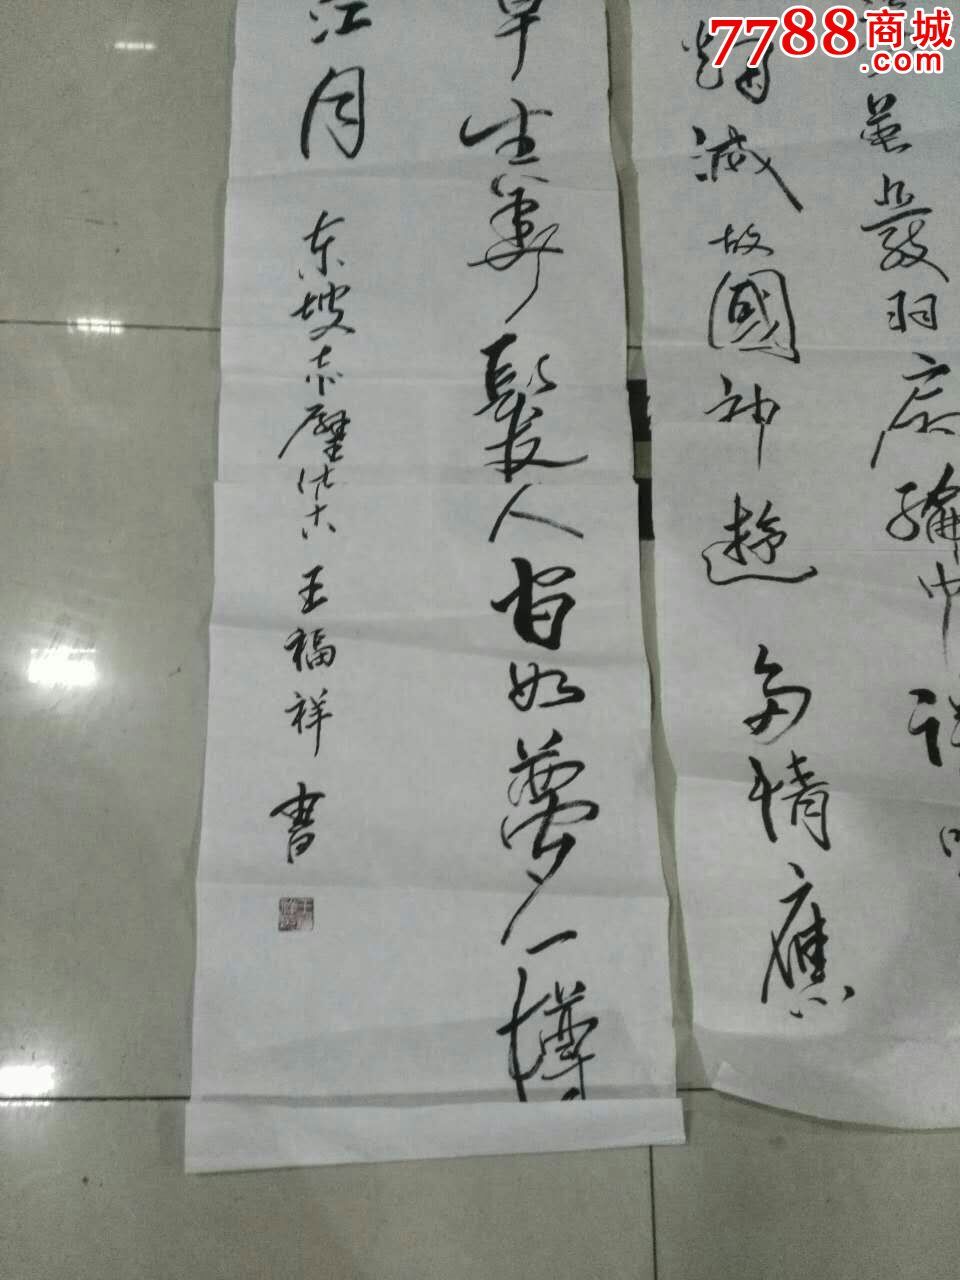 7788商城
.com
英發羽扇綸巾談
煙滅故國神遊多情應
早生華髮人間如夢一樽
江月
东坡赤壁怀古王福祥書